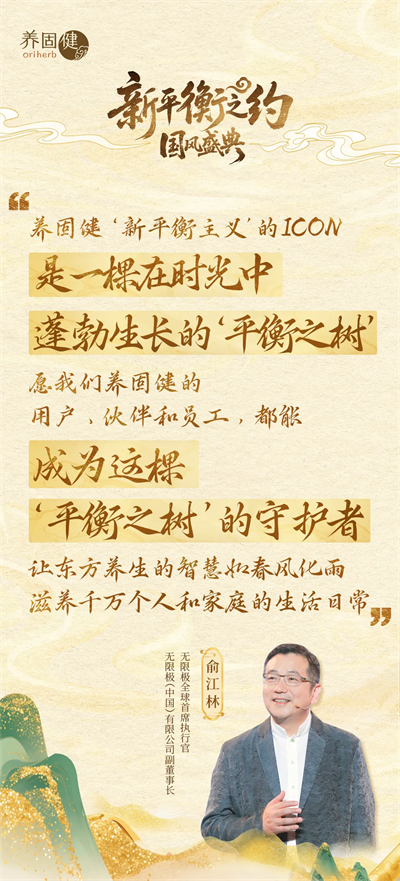 养固健
oriherb
新平衡之约
国风盛典
“
养固健‘新平衡主义’的ICON
是一棵在时光中
蓬勃生长的‘平衡之树’
愿我们养固健的
用户、伙伴和员工，都能
成为这棵
‘平衡之树’的守护者
让东方养生的智慧如春风化雨
滋养千万个人和家庭的生活日常
”
俞江林
无限极全球首席执行官
无限极（中国）有限公司副董事长